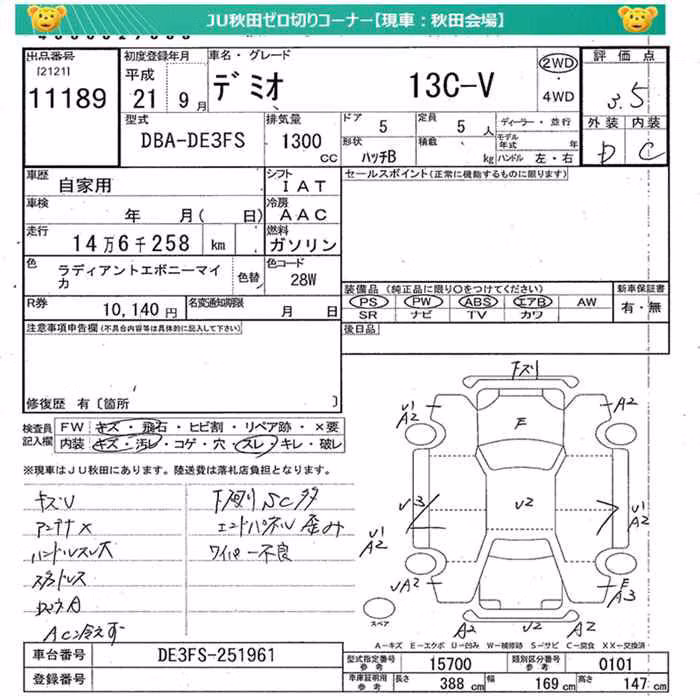 JU秋田ゼロ切りコーナー【現車：秋田会場】
出品番号 初度登録年月 車名・グレード 評価点
[2121] 平成 2WD
11189 21 9月 デミオ 13C-V 4WD 3.5
型式 排気量 ドア 定員 ディーラー・並行 外装 内装
DBA-DE3FS 1300 cc 5 5人 モデル年式 年 D C
形状 積載
ハッチB kg ハンドル 左・右
車歴 シフト セールスポイント(正常に機能するものに限ります)
自家用 IAT
車検 冷房
年 月( 日) AAC
走行 燃料
14万6千258 km ガソリン
色 色コード
ラディアントエボニーマイカ 色替 28W
装備品(純正品に限り○をつけてください) 新車保証書
R券 名変通知期限 PS PW ABS エアB AW 有・無
10,140円 月 日 SR ナビ TV カワ
注意事項申告欄(不具合内容等は具体的に記入して下さい) 後日品
修復歴 有〔箇所 〕
検査員記入欄 FW キズ・飛石・ヒビ割・リペア跡・×要
内装 キズ・汚レ・コゲ・穴・スレ・キレ・破レ
※現車はJU秋田にあります。陸送費は落札店負担となります。
キズU 下廻りSC多
アンテナX エンドパネル歪み
ハンドルスレ大 ワイパー不良
スタッドレス
AC冷えず
下ズリ
U1
A2
A2
E
U3
U2
U1
A2
U1
A2
UA2
E
A3
A2
U2
A2
スペア
A－キズ E－エクボ U－凹み W－補修跡 S－サビ C－腐食 XX－交換済
車台番号 DE3FS-251961 型式指定番号参考 15700 類別区分番号参考 0101
登録番号 車庫証明用参考 長さ 388cm 幅 169cm 高さ 147cm